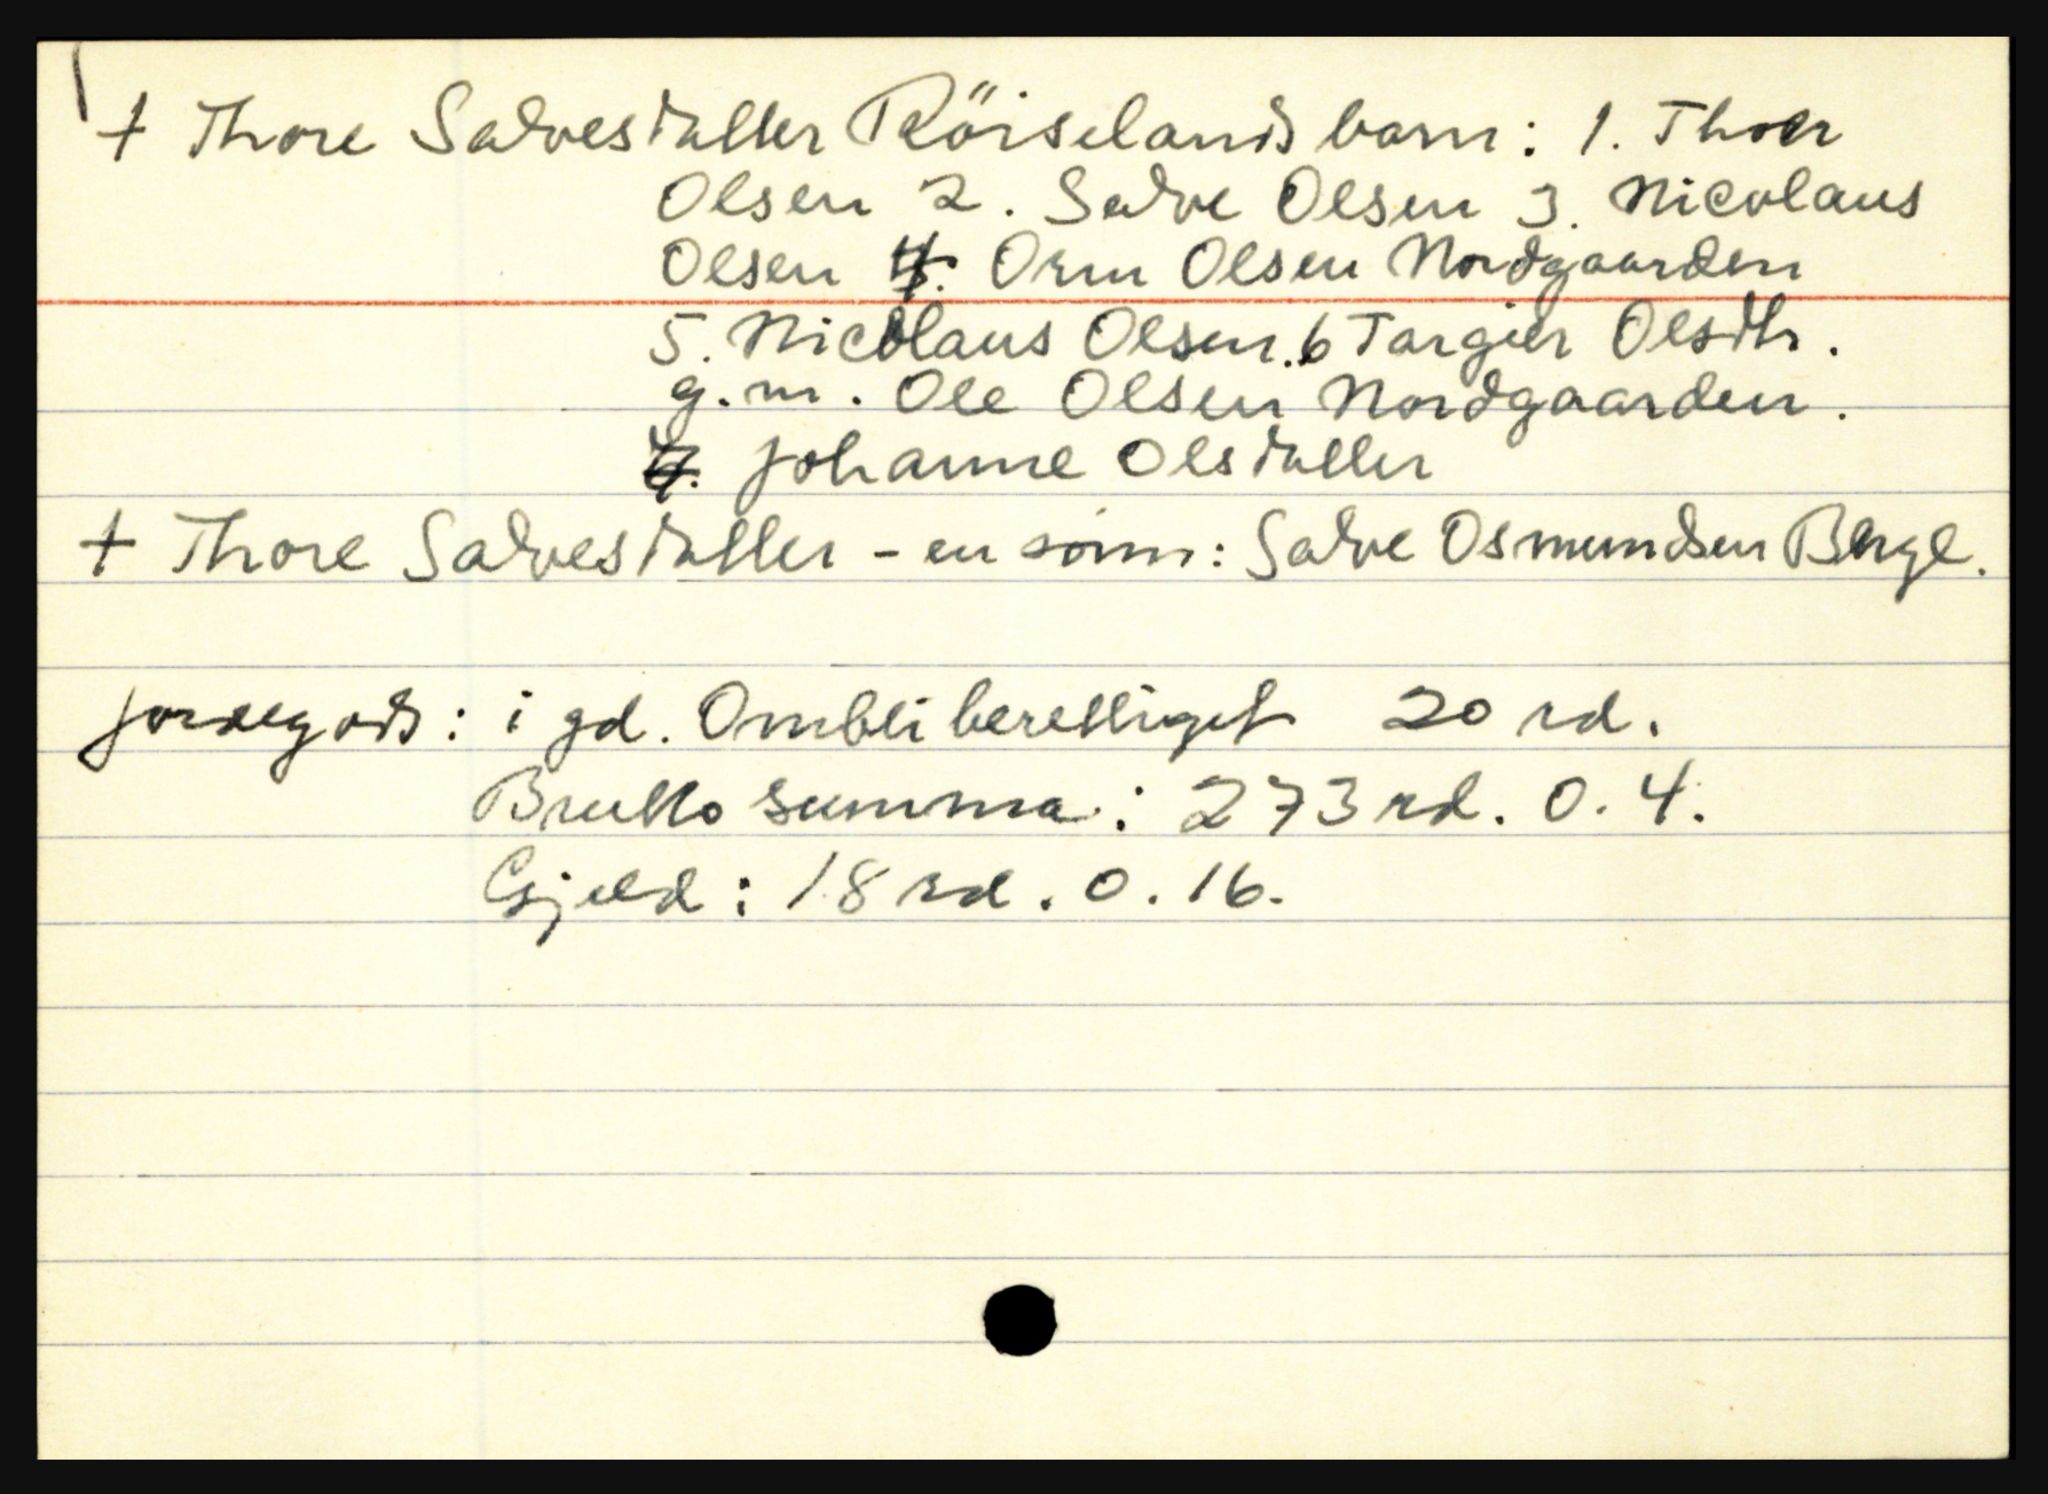 + Thore Salvesdatter Röiselands barn: 1. Thoer
Olsen 2. Salve Olsen 3. Nicolaus
Olsen 4. Orm Olsen Nordgaarden
5. Nicolaus Olsen. 6 Targier Olsdtr.
g.m. Ole Olsen Nordgaarden.
7. Johanne Olsdatter
+ Thore Salvesdatter - en sönn: Salve Osmundsen Berge.
Jordegods: i gd. Ombli berettiget 20 rd.
Brutto summa: 273 rd. 0. 4.
Gjeld: 18 rd. 0. 16.